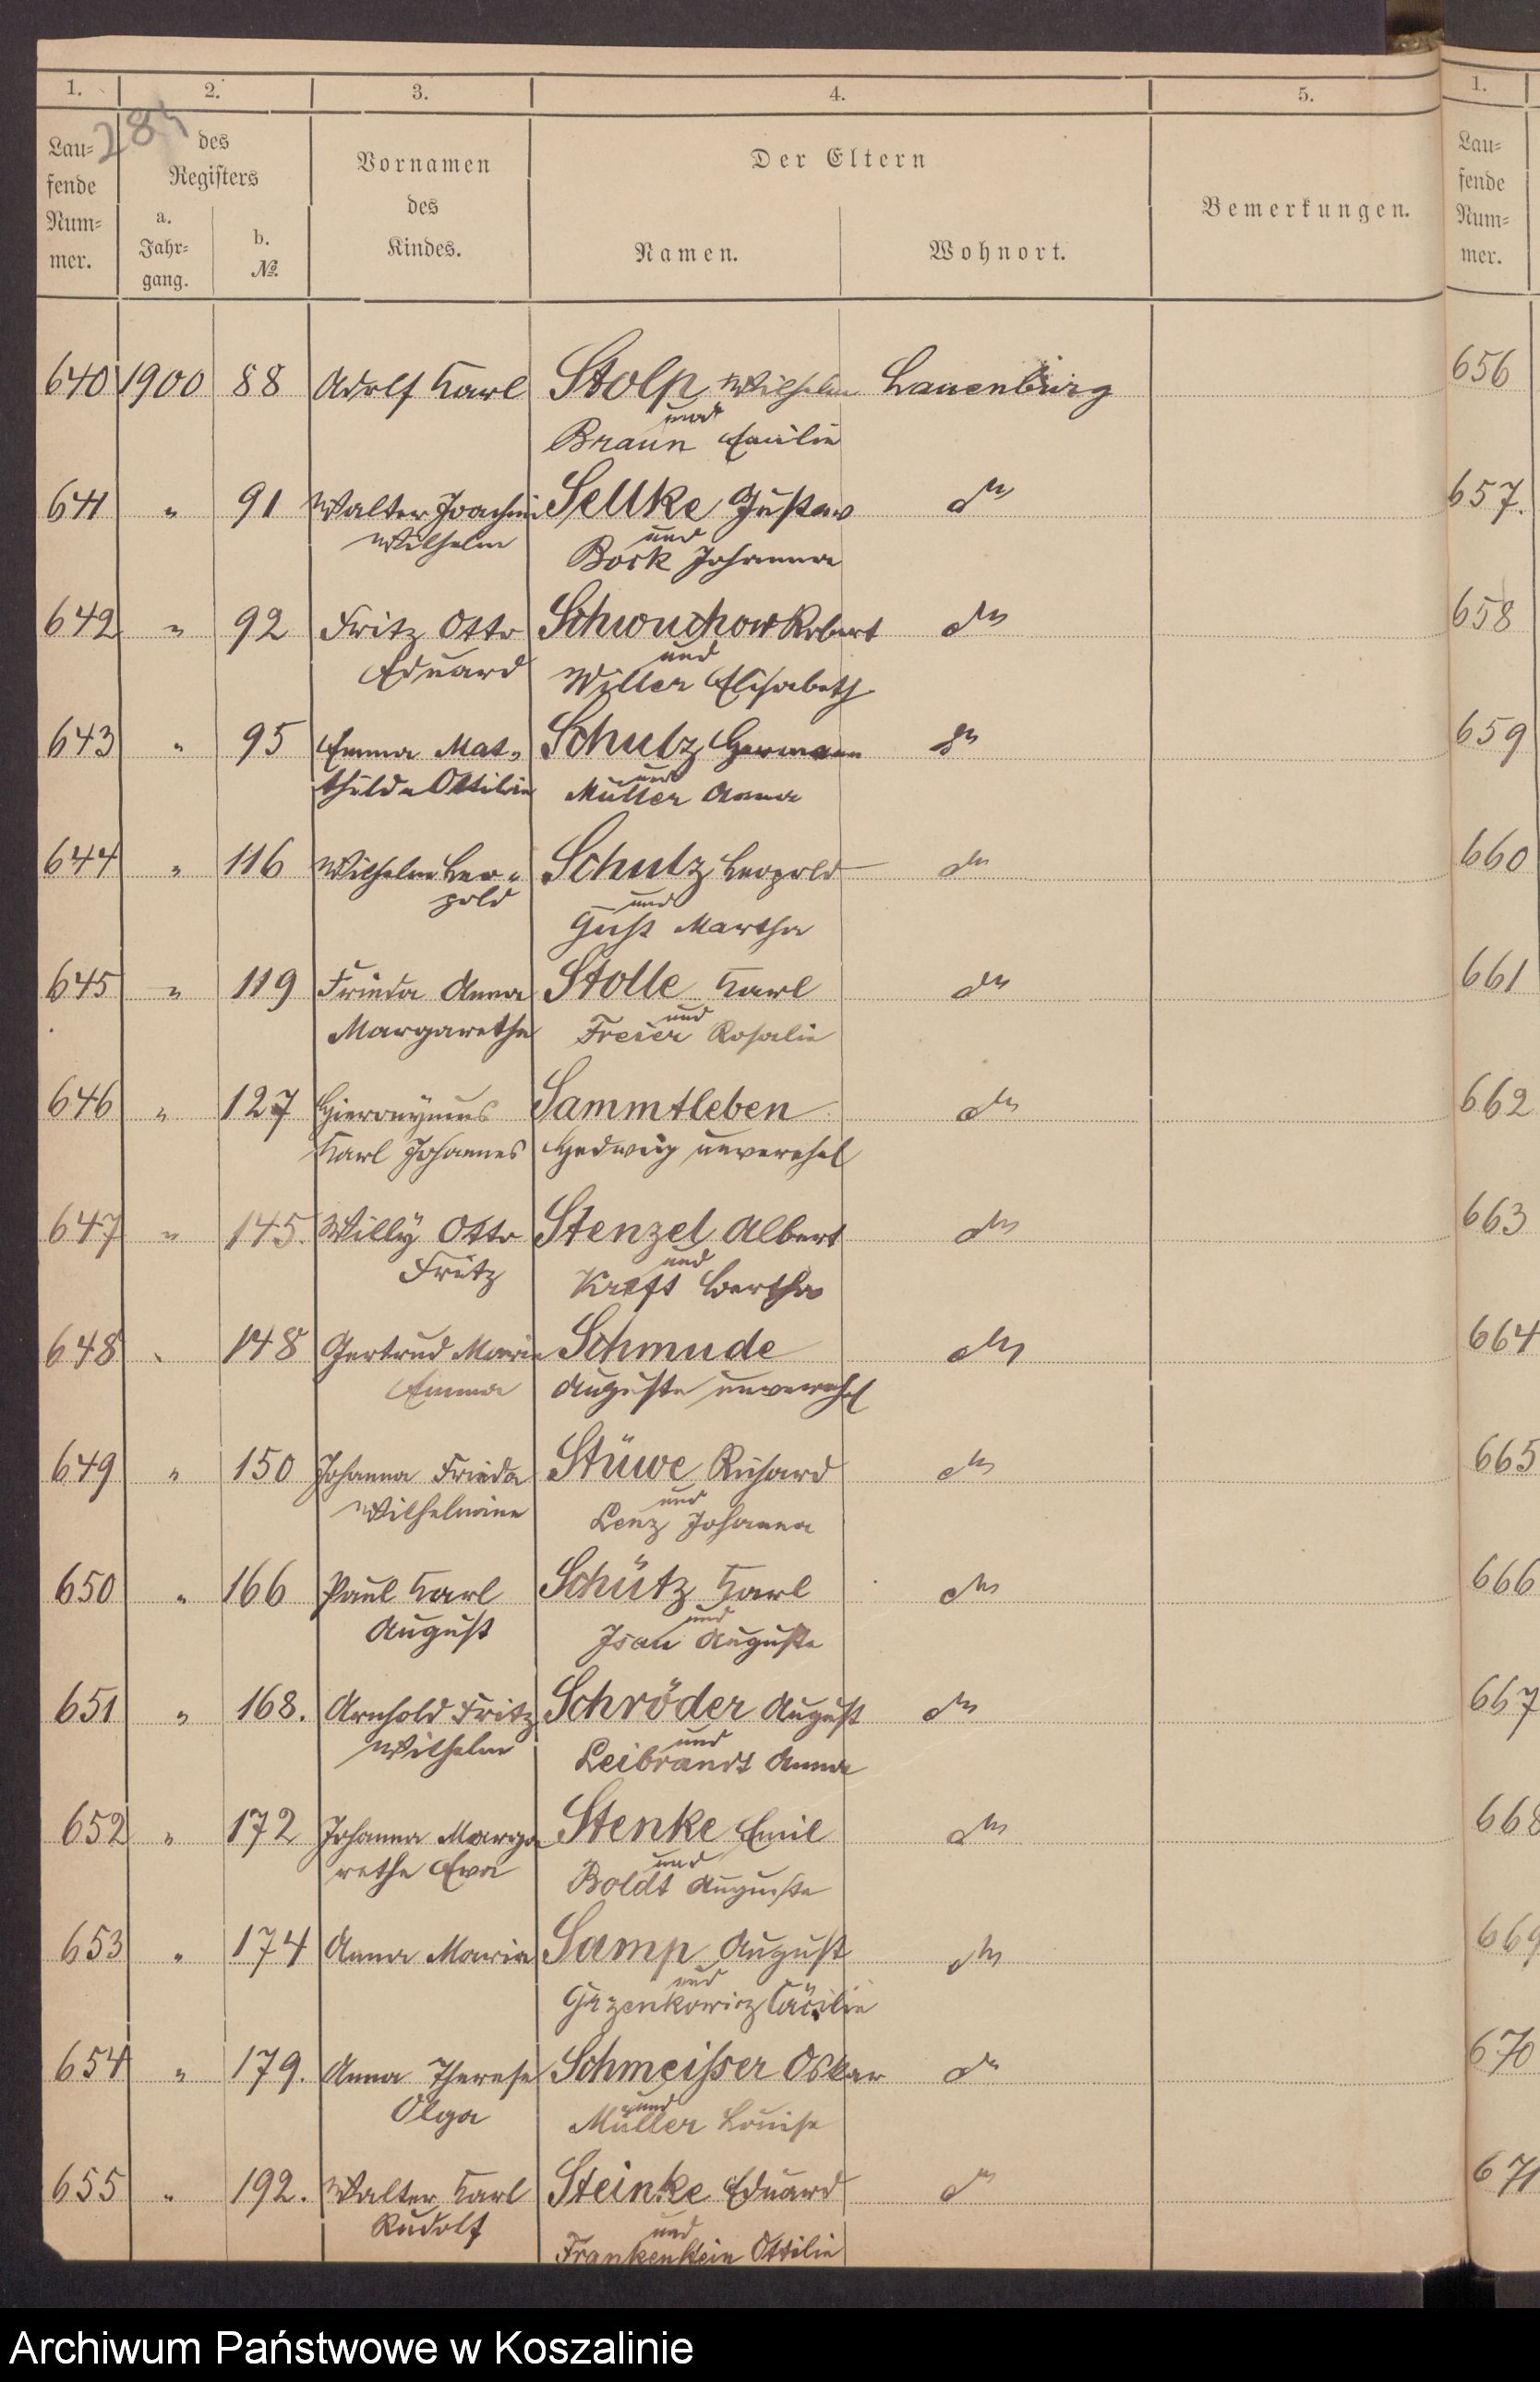 1. 2. 3. 4. 5. 1.
284
Lau=
fende
Num=
mer.
des
Registers
a.
Jahr=
gang.
b.
№.
Vornamen
des
Kindes.
Der Eltern
Namen. Wohnort.
Bemerkungen.
Lau=
fende
Num=
mer.
640 1900 88 Adolf Karl Stolp Wilhelm Lauenburg 656
und
Braun Emilie
641 " 91 Walter Joachim Sellke Gustav do 657.
Wilhelm und
Bock Johanna
642 " 92 Fritz Otto Schwuchow Robert do 658
Eduard und
Willer Elisabeth
643 " 95 Emma Mat= Schulz Hermann do 659
thilde Ottilie und
Müller Anna
644 " 116 Wilhelm Leo= Schulz Leopold do 660
pold und
Gust Martha
645 " 119 Frieda Anna Stolle Karl do 661
Margarethe und
Freier Rosalie
646 " 127 Hieronymus Sammtleben do 662
Karl Johannes Hedwig unverehel
647 " 145. Willy Otto Stenzel Albert do 663
Fritz und
Kreft Bertha
648 " 148 Gertrud Marie Schmude do 664
Emma Auguste unverehel
649 " 150 Johanna Frieda Stüwe Richard do 665
Wilhelmine und
Lenz Johanna
650 " 166 Paul Karl Schütz Karl do 666
August und
Auguste
651 " 168. Arnhold Fritz Schröder August do 667
Wilhelm und
Leibrandt Anna
652 " 172 Johanna Marga Stenke Emil do 668
rethe Eva und
Boldt Auguste
653 " 174 Anna Maria Samp August do 669
und
Cäcilie
654 " 179. Anna Therese Schmeisser Oskar do 670
Olga und
Müller Louise
655 " 192. Walter Karl Steinke Eduard do 671
Rudolf und
Frankenstein Ottilie
Archiwum Państwowe w Koszalinie